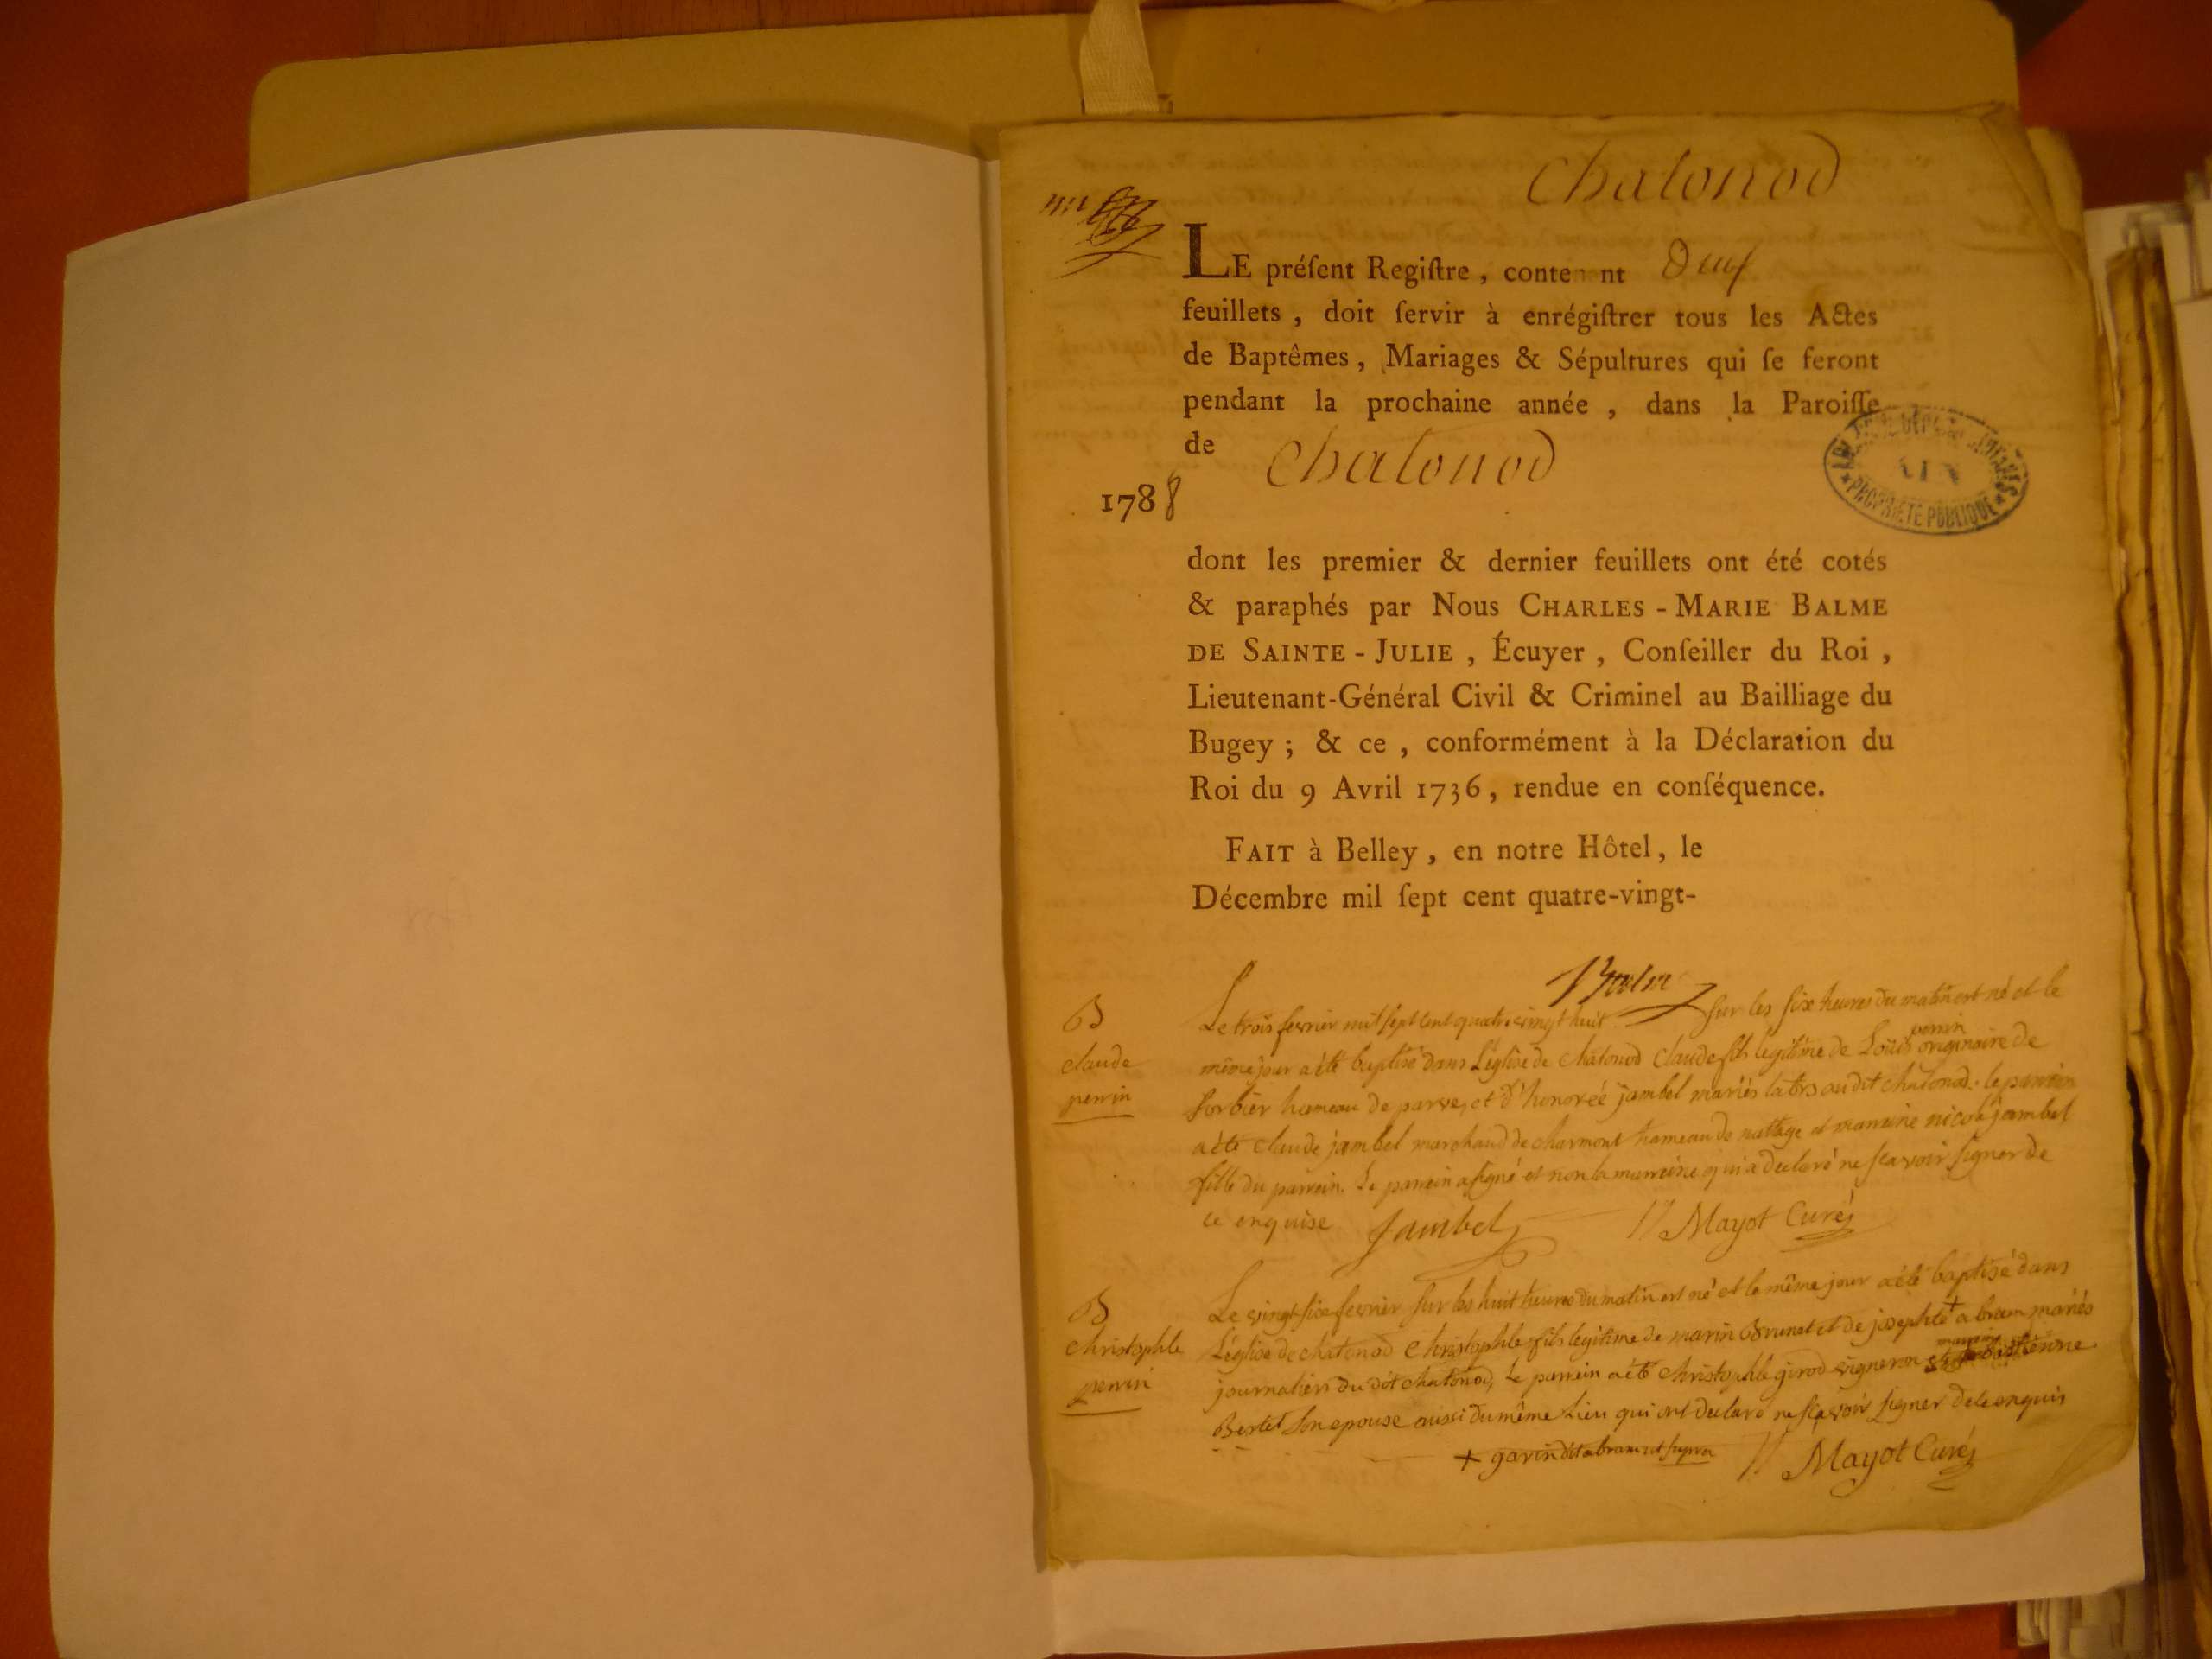 Chatonod
LE préſent Regiſtre, contenant Deux
feuillets, doit ſervir à enrégiſtrer tous les Actes
de Baptêmes, Mariages & Sépultures qui ſe feront
pendant la prochaine année, dans la Paroiſſe
de Chatonod
1788
dont les premier & dernier feuillets ont été cotés
& paraphés par Nous CHARLES-MARIE BALME
DE SAINTE-JULIE, Écuyer, Conſeiller du Roi,
Lieutenant-Général Civil & Criminel au Bailliage du
Bugey; & ce, conformément à la Déclaration du
Roi du 9 Avril 1736, rendue en conſéquence.
FAIT à Belley, en notre Hôtel, le
Décembre mil ſept cent quatre-vingt-
PROPRIETE PUBLIQUE
AIN
Balme
B
claude
perrin
Le trois fevrier mil sept cent quatrevingt huit sur les six heures du matin est né et le
même jour a été baptisé dans L'église de chatonod claude fils legitime de Loüis perrin originaire de
sorbier hameau de parve, et d'honorée jambel mariés audit chatonod. le parrein
a été claude jambel marchand de charmont hameau de nattage et marreine nicole jambel
fille du parrein. Le parrein a signé et non la marreine qui a declaré ne scavoir signer de
ce enquise Jambel Mayot Curé
B
christophle
perrin
Le vingt-six fevrier sur les huit heures du matin est né et le même jour a été baptisé dans
L'église de chatonod christophle fils legitime de marin Brunet et de josephte + abram mariés
journaliers dudit chatonod, Le parrein a été christophle girod vigneron marreine etienne
Bertet son epouse aussi du même Lieu qui ont declaré ne scavoir signer de ce enquis
+ garin dit abram ut supra Mayot Curé